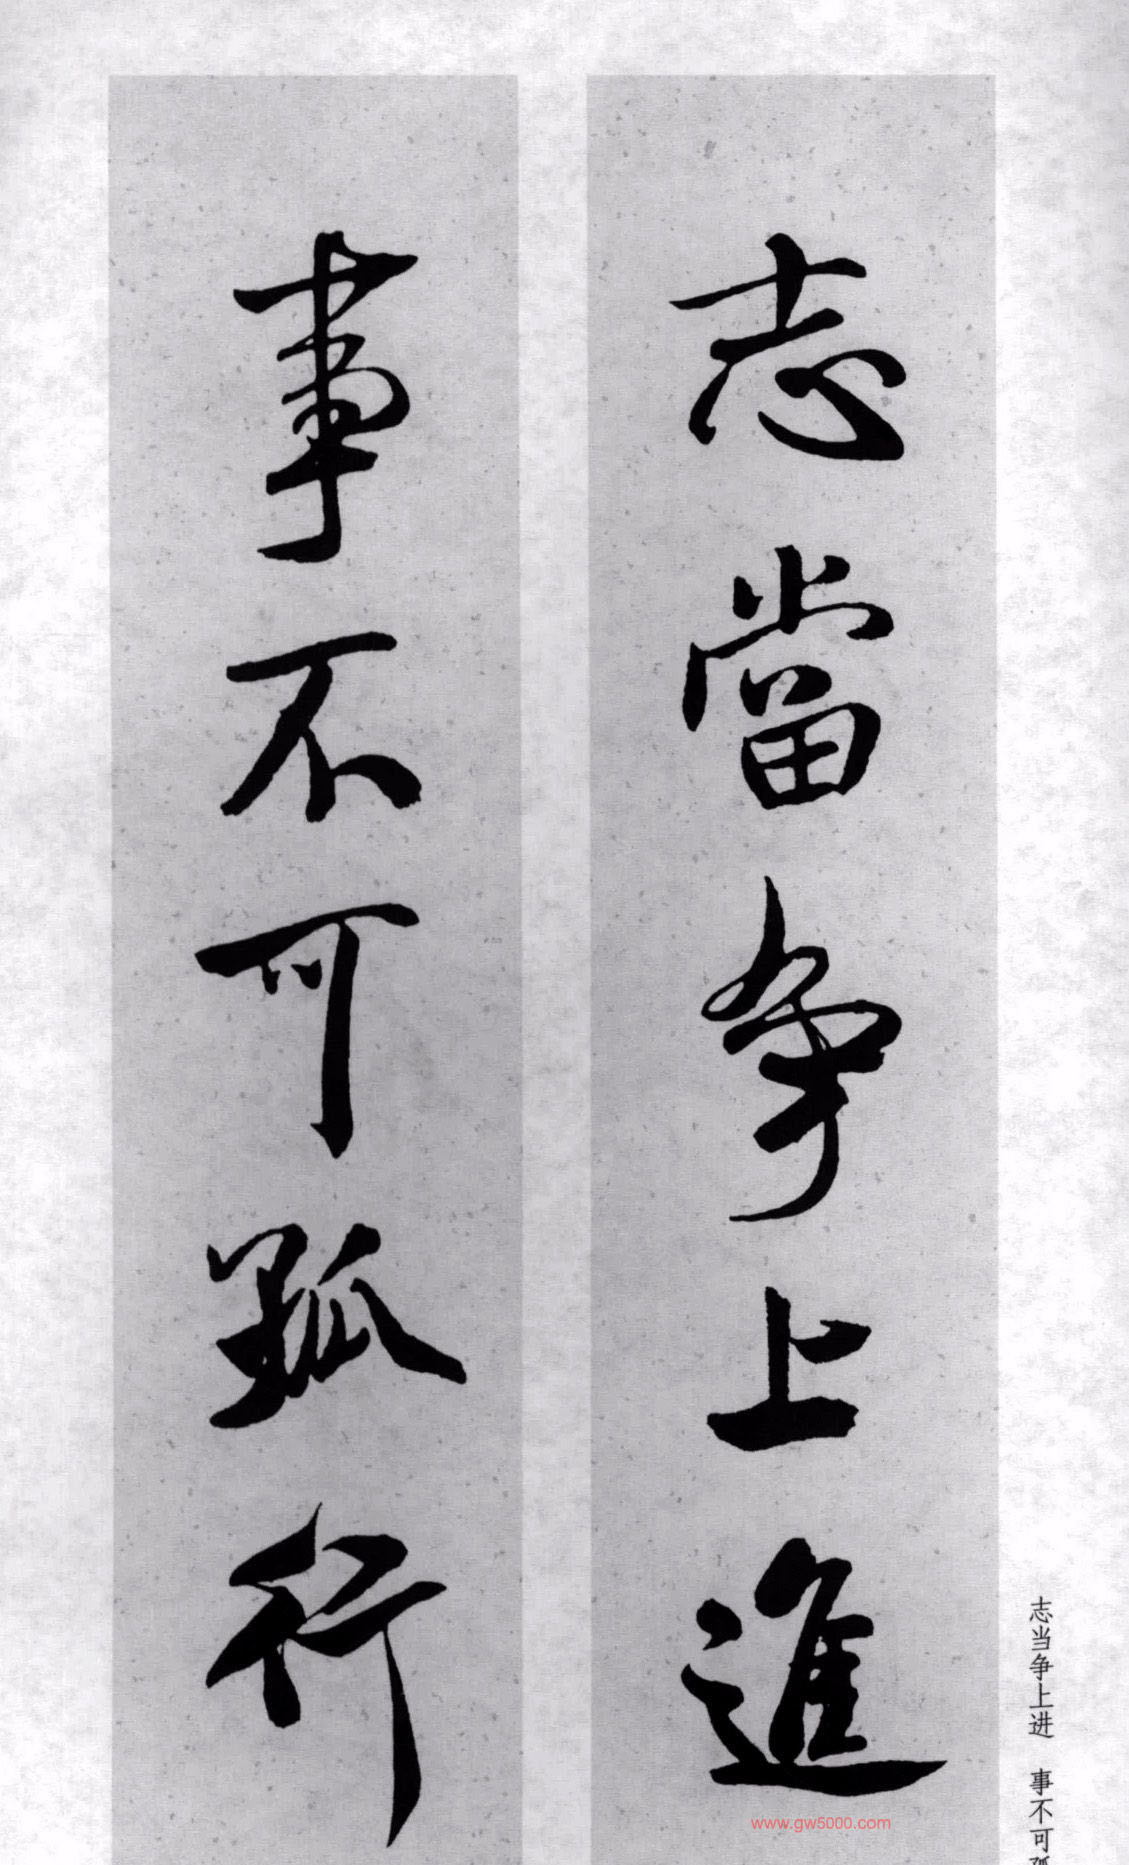 志當争上進
事不可孤行
志当争上进 事不可孤
www.gw5000.com